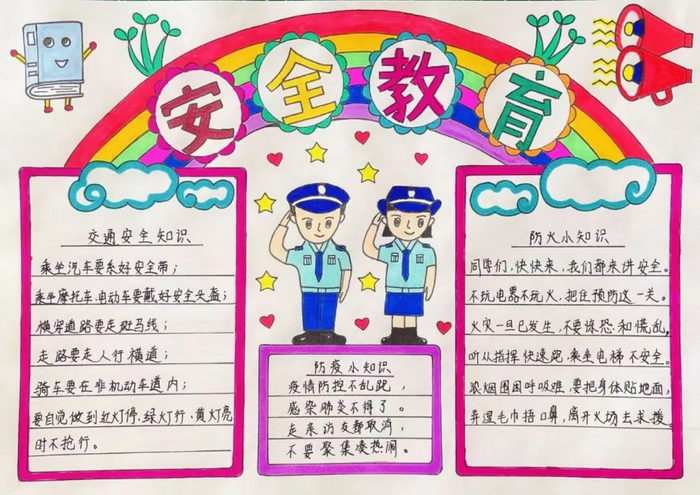 安全教育
交通安全知识
乘坐汽车要系好安全带；
乘坐摩托车、电动车要戴好安全头盔；
横穿道路要走斑马线；
走路要走人行横道；
骑车要在非机动车道内；
要自觉做到红灯停、绿灯行、黄灯亮
时不抢行。
防疫小知识
疫情防控不乱跑，
感染肺炎不得了。
走亲访友都取消，
不要聚集凑热闹。
防火小知识
同学们，快快来，我们都来讲安全。
不玩电器不玩火，把住预防这一关。
火灾一旦已发生，不要惊恐和慌乱。
听从指挥快速跑，乘坐电梯不安全。
浓烟围困呼吸难，要把身体贴地面，
弄湿毛巾捂口鼻，离开火场去求援。